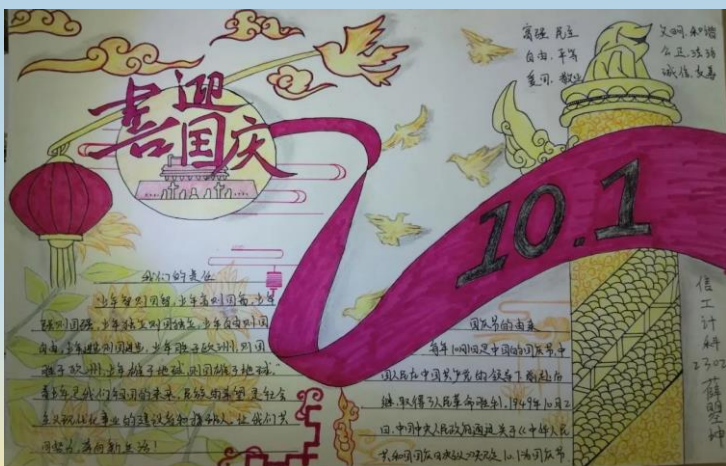 喜迎国庆
富强 民主
自由、平等
爱国、敬业
文明、和谐
公正、法治
诚信、友善
10.1
我们的责任
少年智则国智,少年富则国富,少年
强则国强,少年独立则国独立,少年自由则国
自由,少年进步则国进步,少年胜于欧洲,则国
胜于欧洲,少年雄于地球,则国雄于地球."
青少年是我们祖国的未来,民族的希望,是社会
主义现代化事业的建设者和接班人,让我们共
同努力,
国庆节的由来
每年10月1日是中国的国庆节,中
国人民在中国共产党的领导下前赴后
继,取得了人民革命胜利,1949年10月2
日,中国中央人民政府通过关于《中华人民
共和国国庆日
信工计科2302